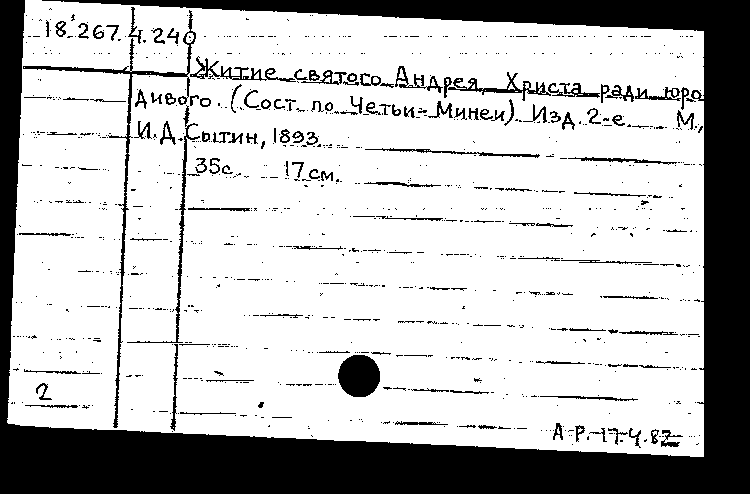 18.267.4.240
Житие святого Андрея, Христа ради юро
дивого. (Сост. по Четьи-Минеи) Изд. 2-е. М.,
И.Д.Сытин, 1893.
35с. 17см.
2
А.Р.-17.4.82